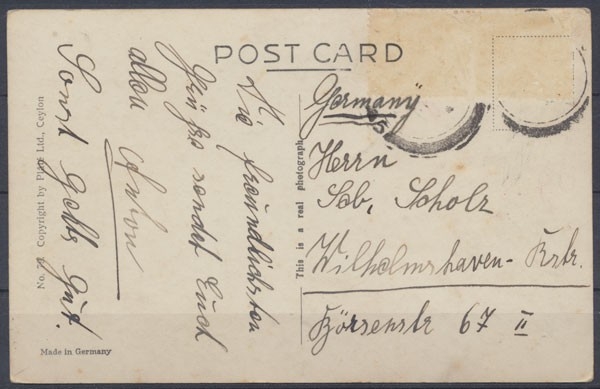 POST CARD
Die freundlichsten
Grüße sendet Euch
allen
Anton
Sonst Gehts Gut.
Germany
Herrn
Seb. Scholz
Wilhelmshaven-Rstr.
Börsenstr 67 II
This is a real photograph
No. Copyright by Platé Ltd., Ceylon
Made in Germany